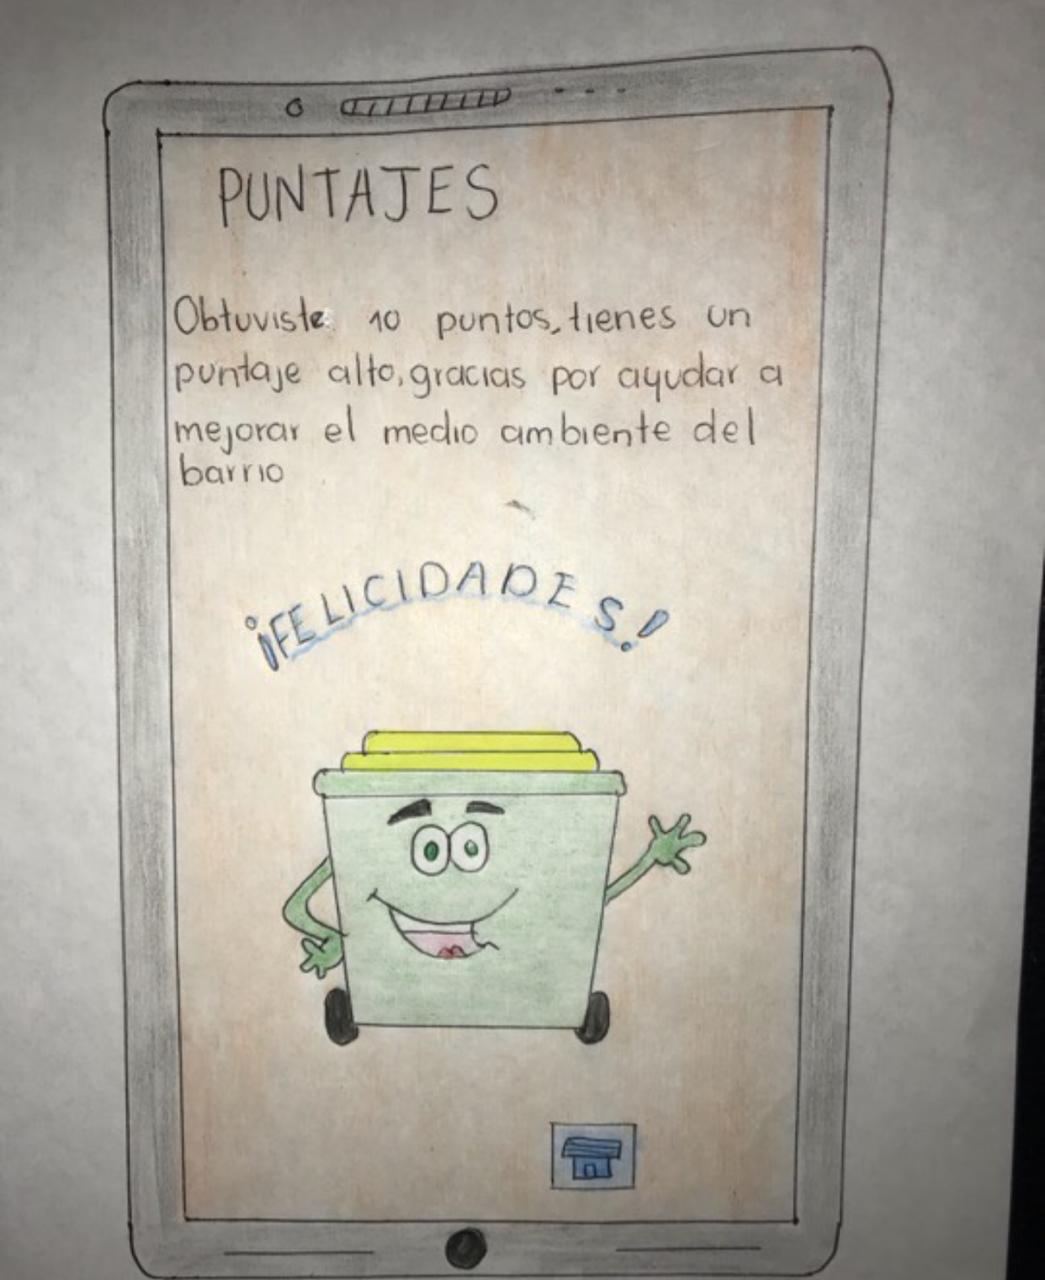 PUNTAJES
Obtuviste 10 puntos, tienes un
puntaje alto, gracias por ayudar a
mejorar el medio ambiente del
barrio
¡FELICIDADES!